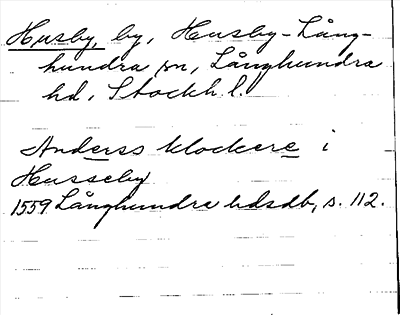 Husby, by, Husby-Lång-
hundra sn, Långhundra
hd, Stockh. l.
Anderss klockere i
Husseby
1559 Långhundra hdsdb, s. 112.